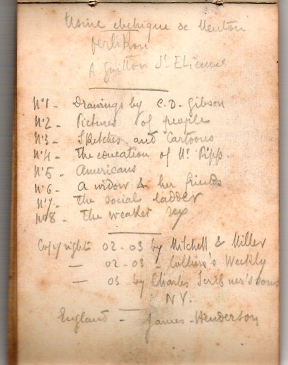 Usine électrique de Menton
A. Guitton St Etienne
N°1 - Drawings by C. D. Gibson
N°2 - Pictures of people
N°3 - Sketches and Cartoons
N°4 - The education of Mr Pipp.
N°5 - Americans
N°6 - A widow & her friends
N°7 - The social ladder
N°8 - The weaker sex
Copyright 02-03 by Mitchell & Miller
— 02-03 - Collier's Weekly
— 03 by Charles Scribner's sons
N.Y.
England - James Henderson